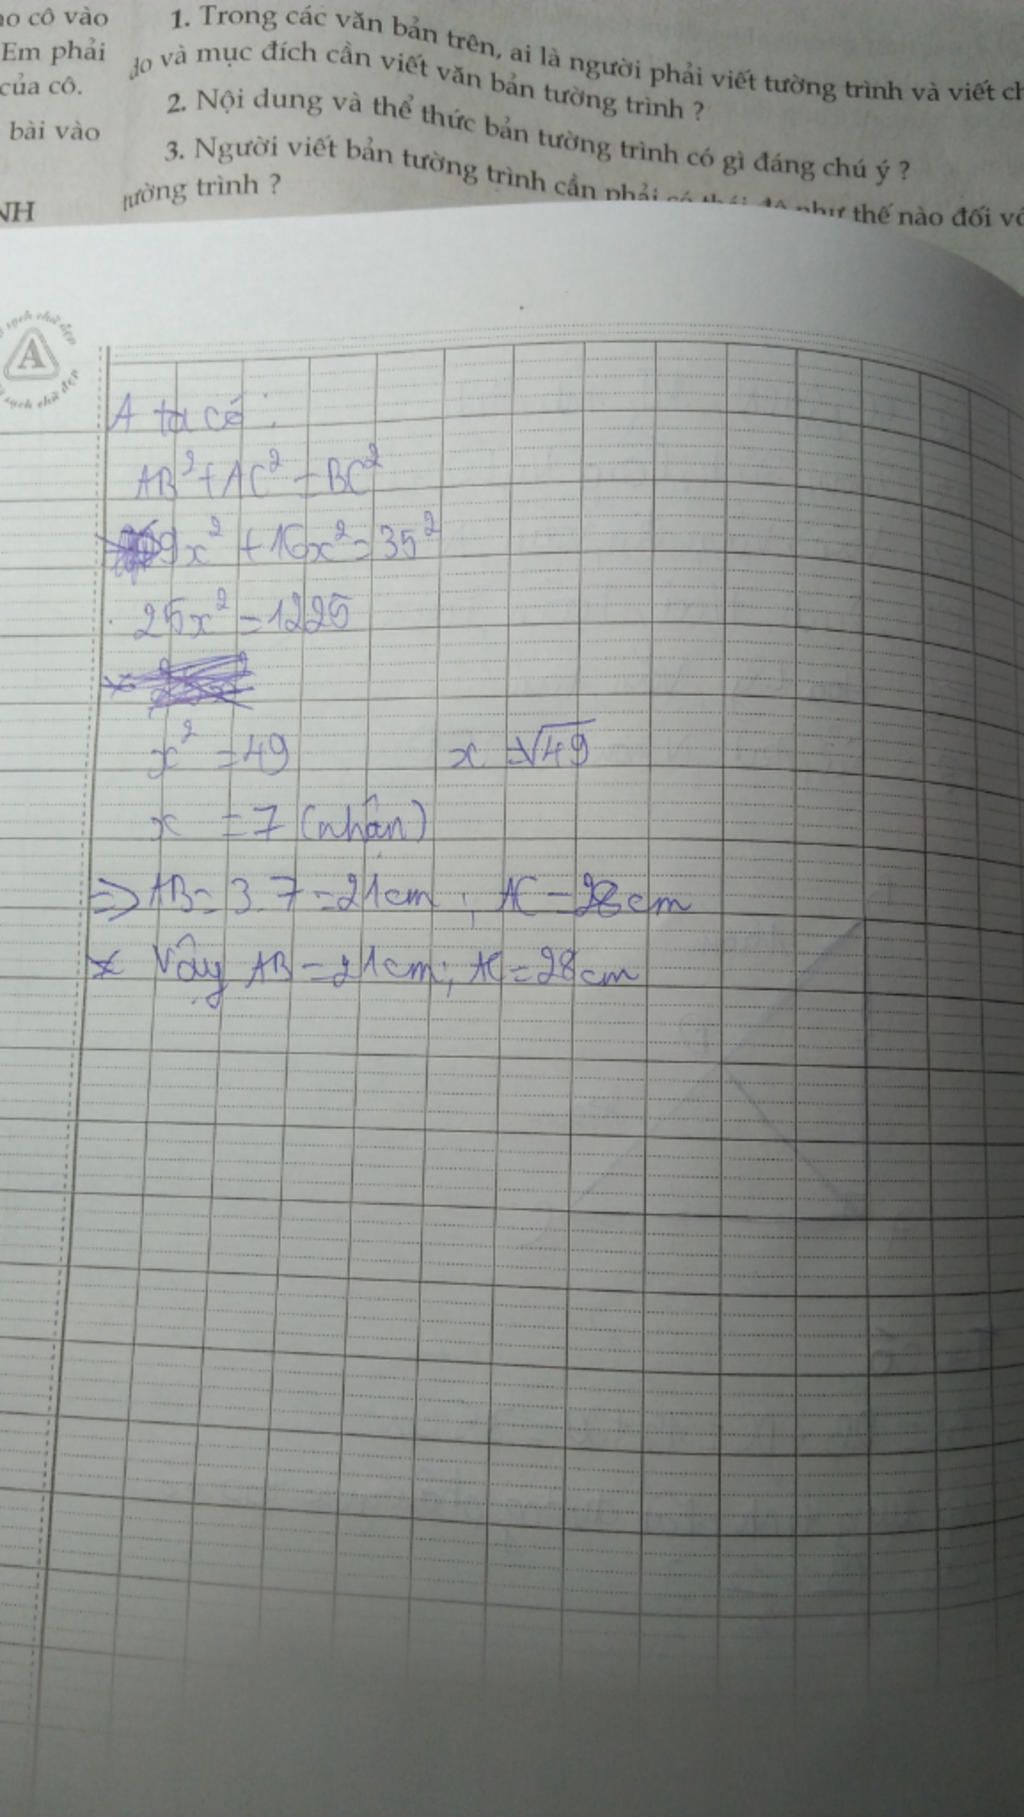 ao cô vào
Em phải
của cô.
bài vào
NH
1. Trong các văn bản trên, ai là người phải viết tường trình và viết ch
do và mục đích cần viết văn bản tường trình ?
2. Nội dung và thể thức bản tường trình có gì đáng chú ý ?
3. Người viết bản tường trình cần phải có thái độ như thế nào đối vớ
tường trình ?
sạch chữ đẹp
A
sạch chữ đẹp
A ta có:
AB² + AC² = BC²
9x² + 16x² = 35²
25x² = 1225
x² = 49 x = √49
x = 7 (nhận)
=> AB = 3.7 = 21cm ; AC = 28cm
* Vậy AB = 21cm; AC = 28cm